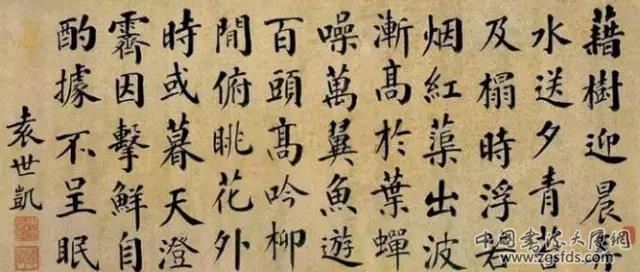 藉樹迎晨
水送夕青
及榻時浮
烟紅蕖出波
漸高於葉蟬
噪萬翼魚遊
百頭高吟柳
間俯眺花外
時或暮天澄
霽因擊鮮自
酌據不呈眠
袁世凱
www.zgsfds.com